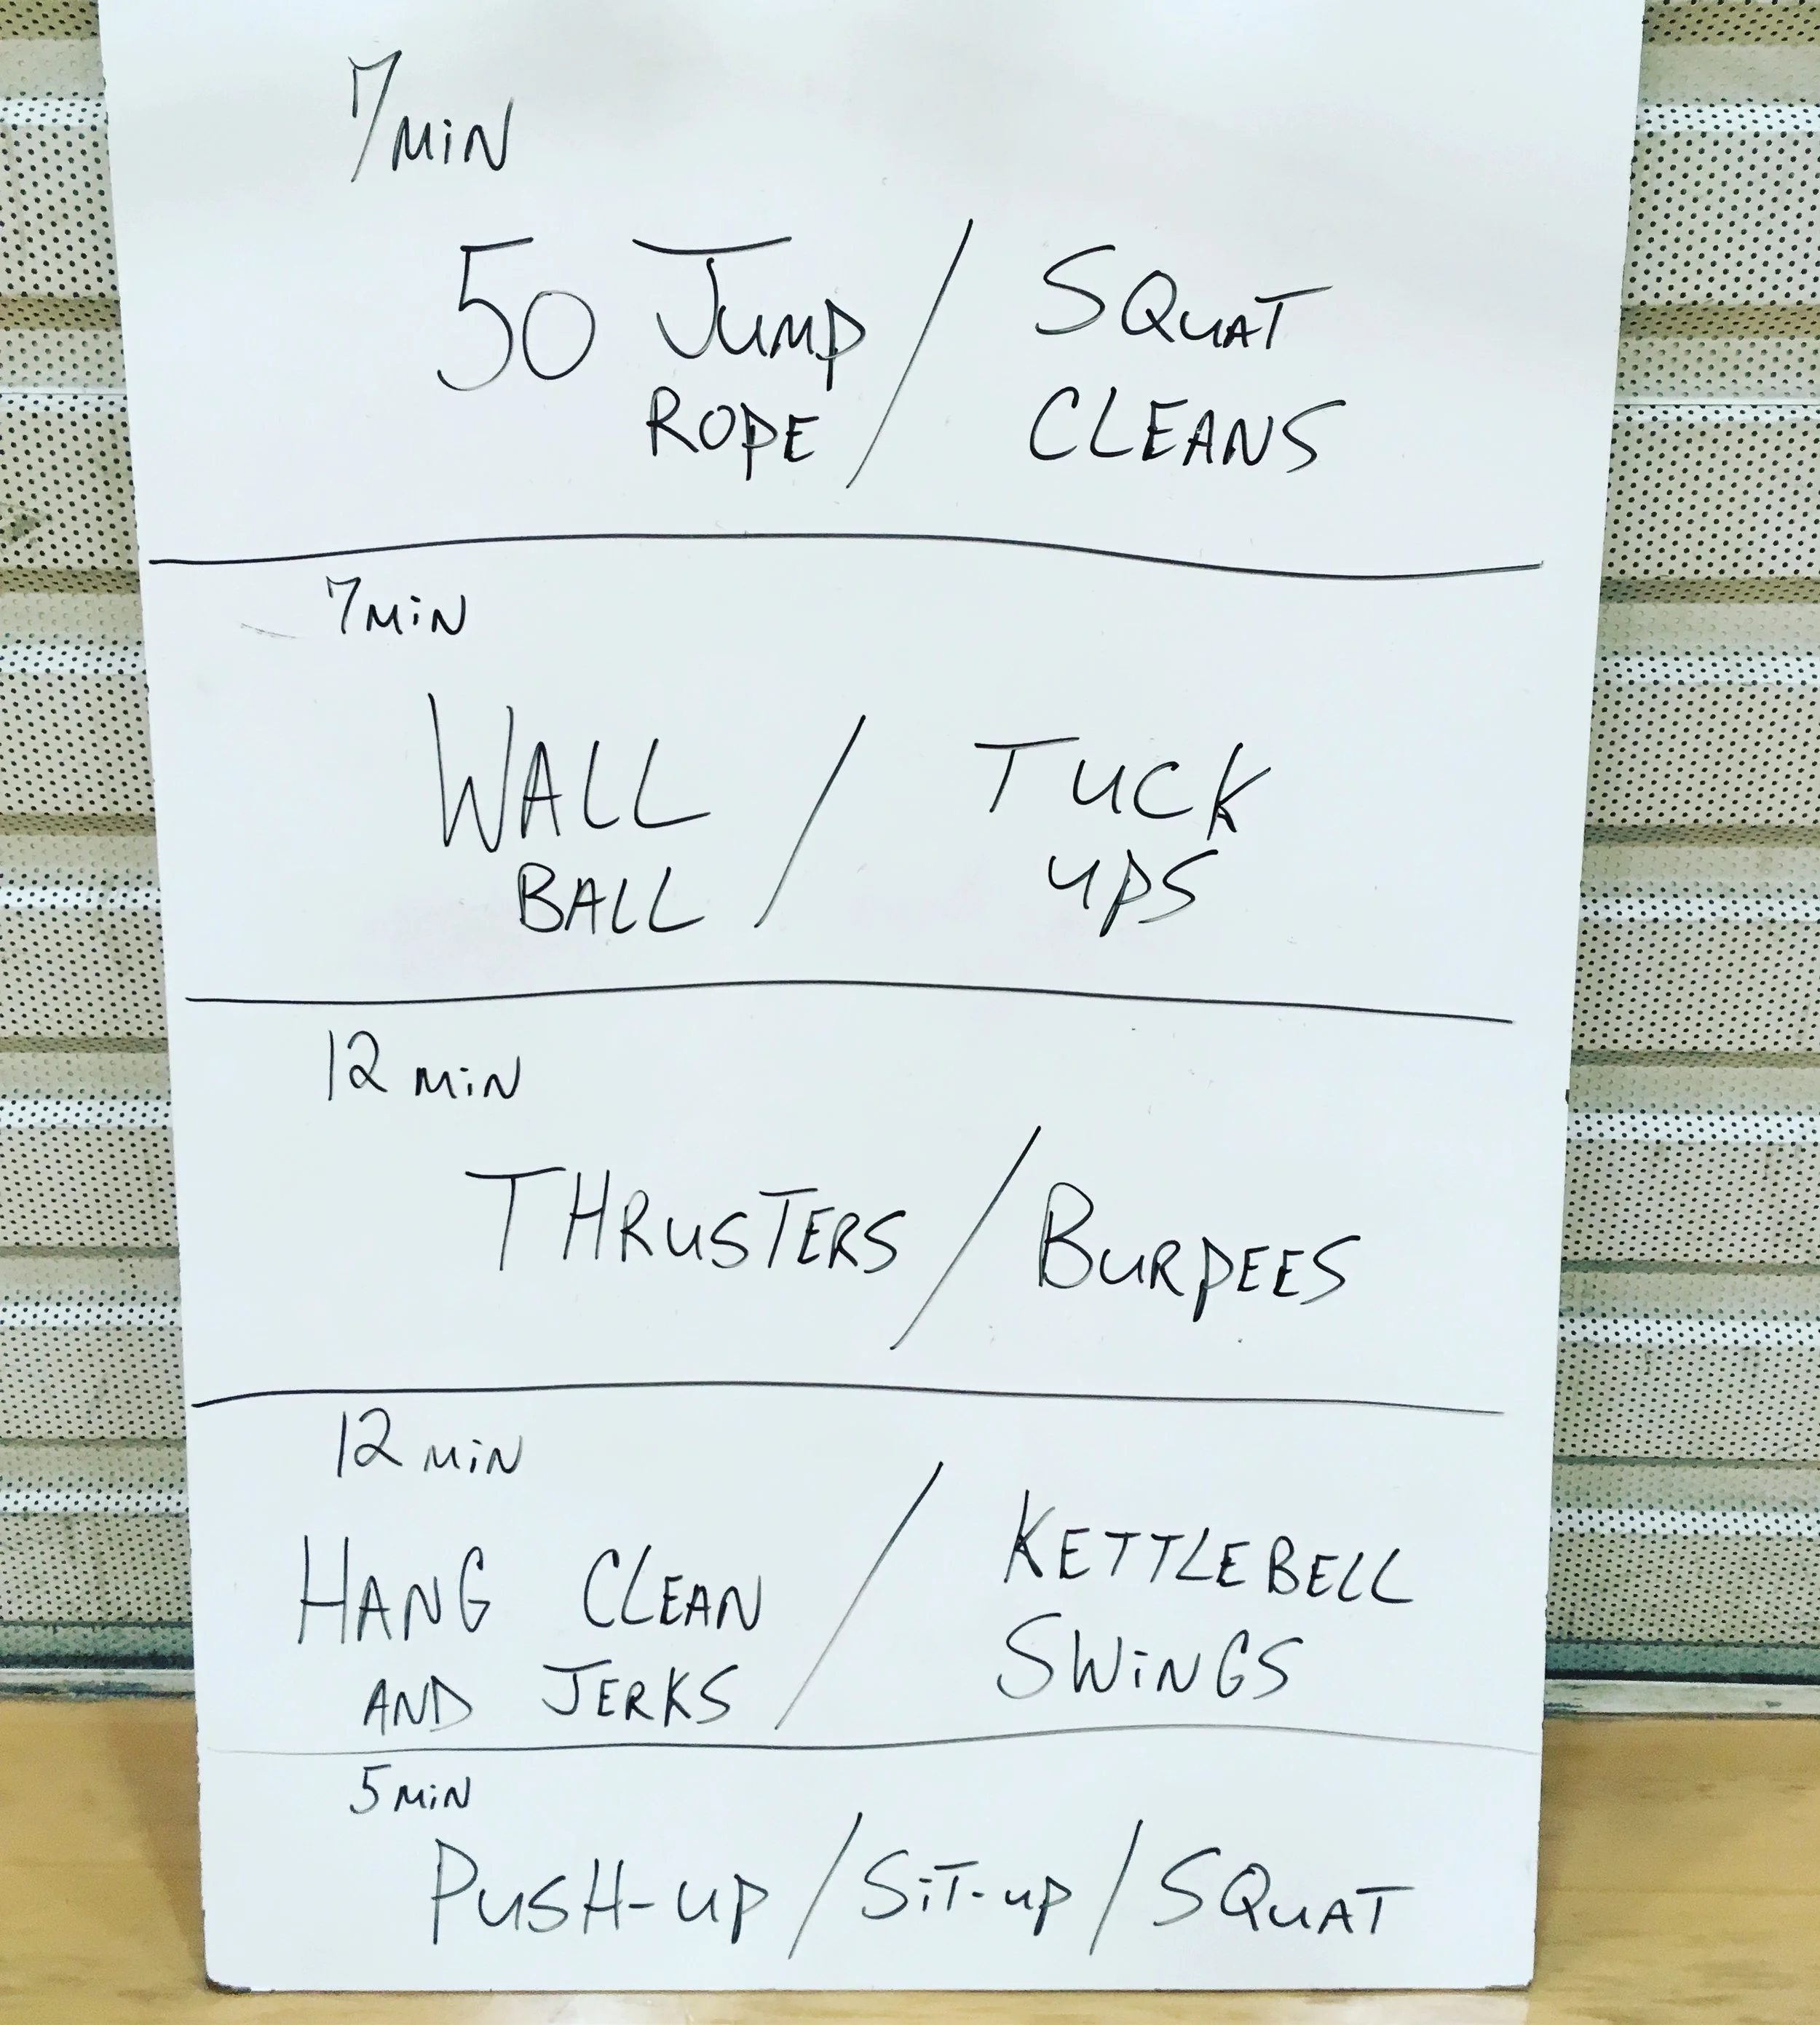 7 MiN
50 JUMP / SQUAT
ROPE CLEANS
7 MiN
WALL / TUCK
BALL UPS
12 MiN
THRUSTERS / BURPEES
12 MiN
HANG CLEAN / KETTLEBELL
AND JERKS SWiNGS
5 MiN
PUSH-UP / SiT-UP / SQUAT